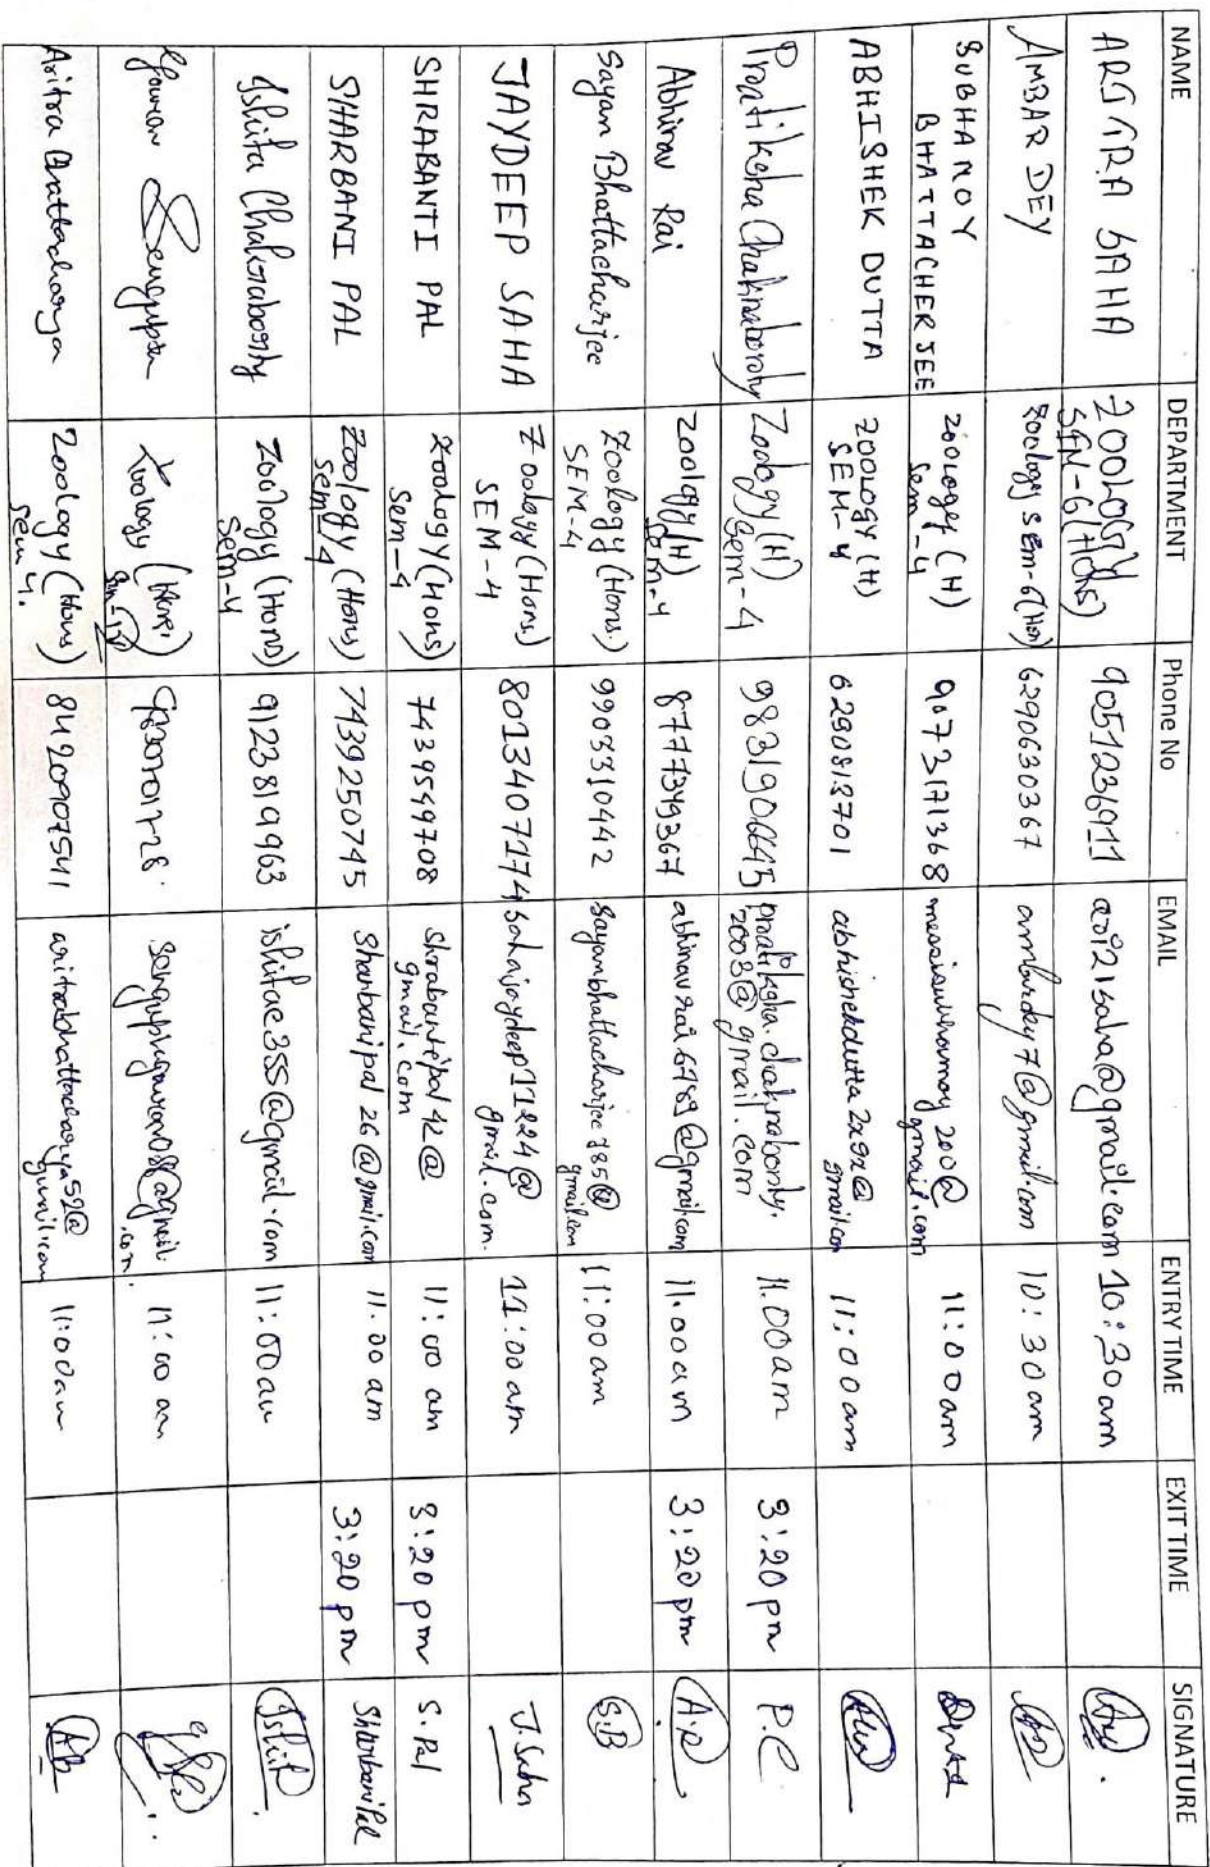 NAME DEPARTMENT Phone No EMAIL ENTRY TIME EXIT TIME SIGNATURE
ARITRA SAHA ZOOLOGY SEM-6 (HONS) 9051236911 ari21saha@gmail.com 10:30am
AMBAR DEY Zoology SEm-6 (Hon) 6290630367 ambardey7@gmail.com 10:30am
SUBHAMOY BHATTACHERJEE zoology (H) Sem-4 9073171368 messisubhamoy200@gmail.com 11:00am
ABHISHEK DUTTA ZOOLOGY (H) SEM-4 6290813701 abhishekdutta2292@gmail.com 11:00am
Pratiksha Chakraborty Zoology (H) Sem-4 9831906645 pratiksha.chakraborty.2003@gmail.com 11.00am 3:20pm P.C
Abhinav Rai Zoology (H) Sem-4 8777349367 abhinavrai6789@gmail.com 11.00am 3:20pm A.R
Sayan Bhattacharjee Zoology (Hons.) SEM-4 9903310442 sayanbhattacharjee785@gmail.com 11:00am S.B
JAYDEEP SAHA Zoology (Hons) SEM-4 8013407174 sahajaydeep11224@gmail.com. 11:00am J.Saha
SHRABANTI PAL Zoology (Hons) Sem-4 7439549708 shrabantipal42@gmail.com 11:00 am 3:20pm S.Pal
SHARBANI PAL Zoology (Hons) Sem-4 7439250745 sharbanipal26@gmail.com 11.00 am 3:20 pm Sharbani Pal
Ishita Chakraborty Zoology (Hons) Sem-4 9123819963 ishitac355@gmail.com 11:00am Ishita
Gourav Sengupta Zoology (Hons) 11:00 am
Aritra Bhattacharya Zoology (Hons) Sem 4. 8420907541 aritrabhattacharya52@gmail.com 11:00am AB